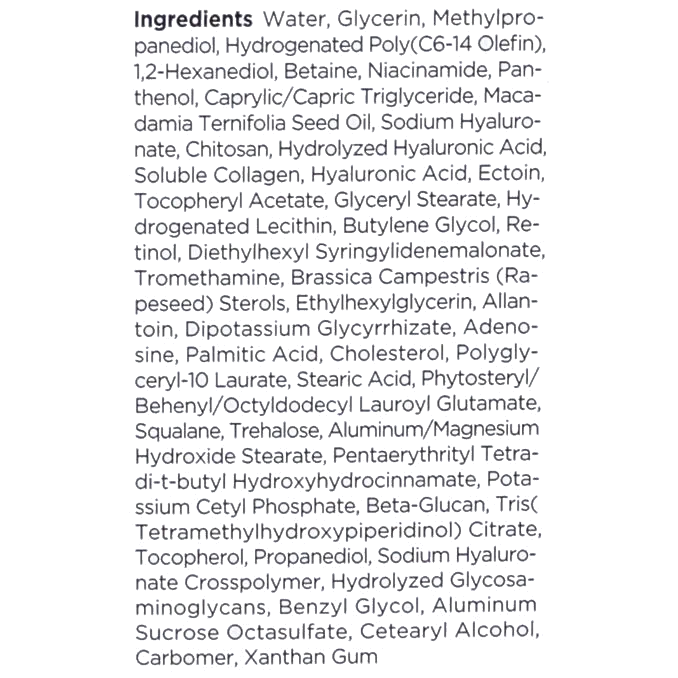 Ingredients Water, Glycerin, Methylpro-
panediol, Hydrogenated Poly(C6-14 Olefin),
1,2-Hexanediol, Betaine, Niacinamide, Pan-
thenol, Caprylic/Capric Triglyceride, Maca-
damia Ternifolia Seed Oil, Sodium Hyaluro-
nate, Chitosan, Hydrolyzed Hyaluronic Acid,
Soluble Collagen, Hyaluronic Acid, Ectoin,
Tocopheryl Acetate, Glyceryl Stearate, Hy-
drogenated Lecithin, Butylene Glycol, Re-
tinol, Diethylhexyl Syringylidenemalonate,
Tromethamine, Brassica Campestris (Ra-
peseed) Sterols, Ethylhexylglycerin, Allan-
toin, Dipotassium Glycyrrhizate, Adeno-
sine, Palmitic Acid, Cholesterol, Polygly-
ceryl-10 Laurate, Stearic Acid, Phytosteryl/
Behenyl/Octyldodecyl Lauroyl Glutamate,
Squalane, Trehalose, Aluminum/Magnesium
Hydroxide Stearate, Pentaerythrityl Tetra-
di-t-butyl Hydroxyhydrocinnamate, Pota-
ssium Cetyl Phosphate, Beta-Glucan, Tris(
Tetramethylhydroxypiperidinol) Citrate,
Tocopherol, Propanediol, Sodium Hyaluro-
nate Crosspolymer, Hydrolyzed Glycosa-
minoglycans, Benzyl Glycol, Aluminum
Sucrose Octasulfate, Cetearyl Alcohol,
Carbomer, Xanthan Gum